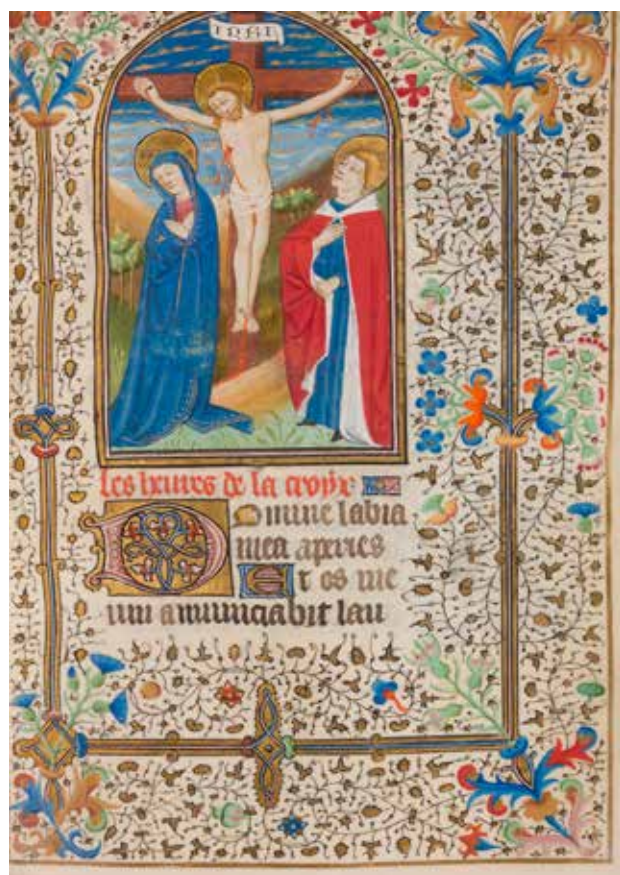 INRI
les heures de la croyx
Domine labia
mea aperies
Et os me
um annunciabit lau